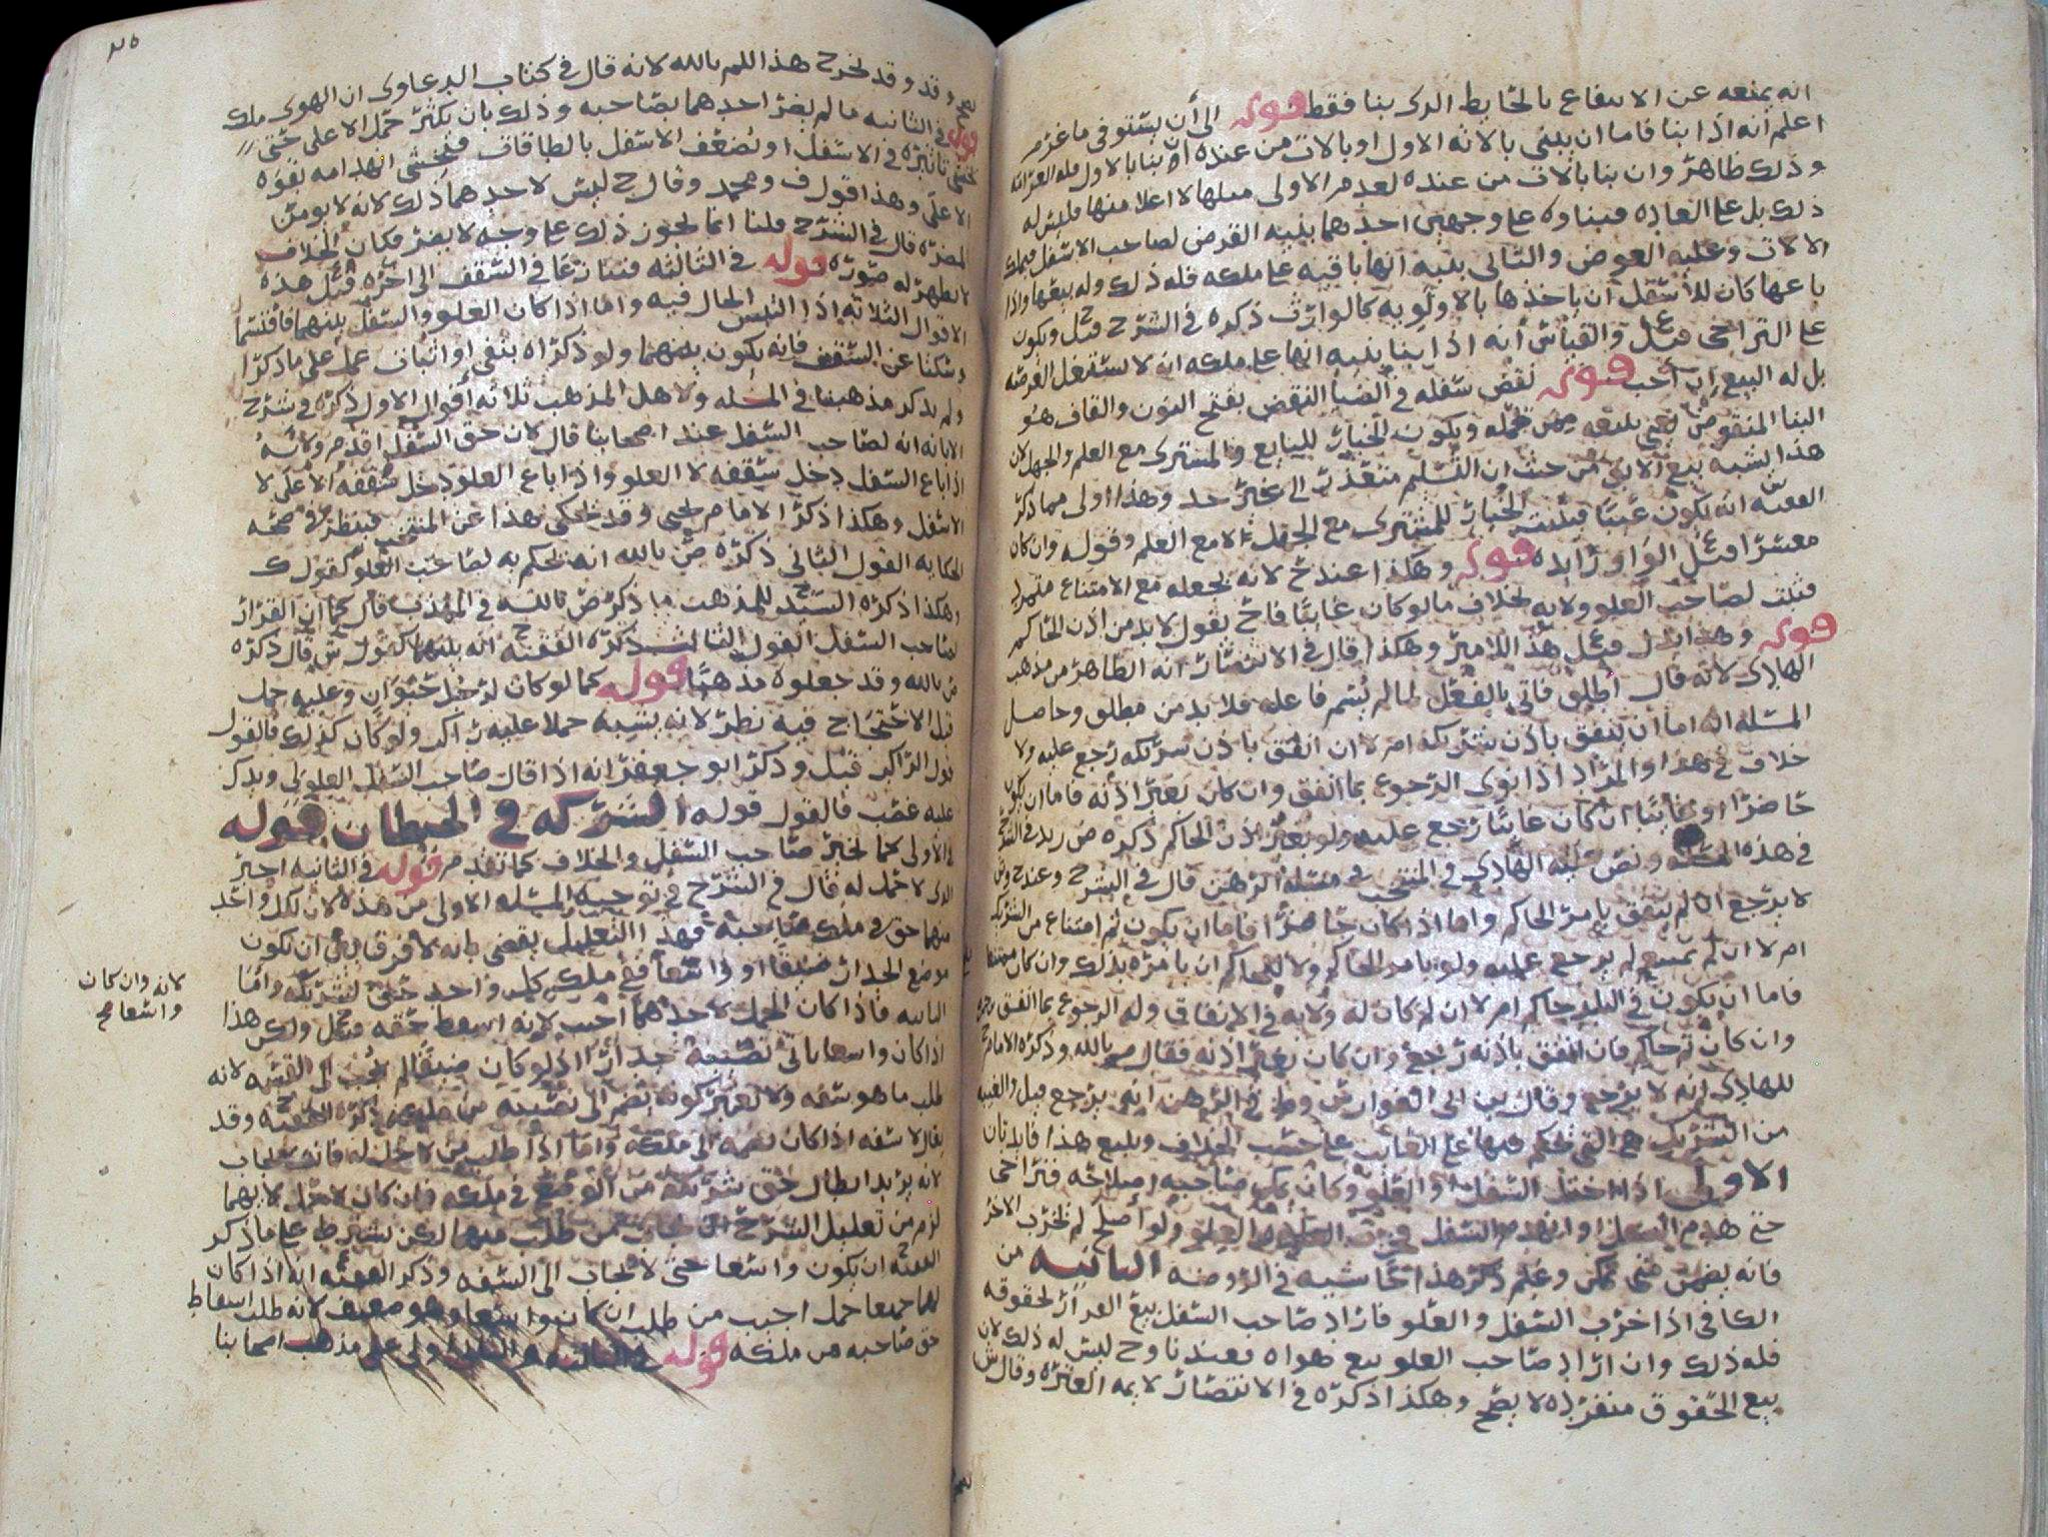 انه يمنعه عن الانتفاع بالحايط الذي بنا فقط قوله الى أن يستوفي ما غرم
اعلم انه اذا بنا فاما ان يبني بالاته الاول او بالات من عنده ان بنا بالاول فله
وذلك ظاهر وان بنا بالات من عنده لعدم الاولى مثلها لا اعلا منها فليس له
ذلك بل على العاده فبناوه على وجهين احدهما بنيه القرض لصاحب الاسفل
الالات وعليه العوض والثاني بنيه انها باقيه على ملكه فله ذلك وله بيعها واذا
باعها كان للأسفل أن ياخذها بالاولويه كالوارث ذكره في الشرح قيل ويكون
على التراخي قيل والقياس أنه اذا بنا بنيه انها على ملكه ان لا يستغل العرصه
بل له البيع ان أحب قوله نقض سفله في الضيا النقض بفتح النون والقاف هو
البنا المنقوض ويكون الخيار للبايع والمشتري مع العلم والجهل لان
هذا يشبه بيع الابق من حيث ان التسليم متعذر الى غير حد وهذا اولى مما ذكر
الفقيه س انه يكون عيبا فيثبت الخيار للمشتري مع الجهل لا مع العلم وقوله وان كان
معسرا قيل الواو زايده قوله وهكذا عند ح لانه يجعله مع الامتناع متمردا
فثبت لصاحب العلو ولايه بخلاف ما لو كان غايبا فاح يقول لا بد من اذن الحاكم
قوله وهذا قيل هذا للامير وهكذا قال في الانتصار انه الظاهر من مذهب
الهادي لانه قال اطلق فاتى بالفعل لما لم يسم فاعله فلا بد من مطلق وحاصل
المسله انه اما ان ينفق باذن شريكه ام لا ان انفق باذن شريكه رجع عليه ولا
خلاف في هذا والمراد اذا نوى الرجوع بما انفق وان كان بغير اذنه فاما ان يكون
حاضرا او غايبا ان كان غايبا رجع عليه ولو بغير اذن الحاكم ذكره ض زيد في الشرح
في هذه المسله ونص عليه الهادي في المنتخب في مسئله الرهن قال في الشرح وعند ح وش
لا يرجع ان لم ينفق بامر الحاكم واما اذا كان حاضرا فاما ان يكون ثم امتناع من الشريك
ام لا ان لم يمتنع لم يرجع عليه ولو بامر الحاكم ولا للحاكم ان يامره بذلك وان كان ممتنعا
فاما ان يكون في البلد حاكم ام لا ان لم كان له ولايه في الانفاق وله الرجوع بما انفق
وان كان ثم حاكم فان انفق باذنه رجع وان كان بغير اذنه فقال م بالله وذكره الامام ح
للهادي انه لا يرجع وقال الرهن انه يرجع قيل والغيبه
من الشريك هي التي يحكم فيها على الغايب على حسب الخلاف ويتبع هذا فايدتان
الاولى اذا اختل السفل او العلو وكان يمكن صاحبه اصلاحه فتراخى
حتى هدم السفل او انهدم السفل ولو أصلح لم يخرب الاخر
فانه يضمن متى تمكن وعلم ذكر هذا حاشيه في الروضه الثانيه من
الكافي اذا خرب السفل والعلو فاراد صاحب السفل بيع القرار لحقوقه
فله ذلك وان اراد صاحب العلو بيع هواه فعندنا وح ليس له ذلك لان
بيع الحقوق منفرده لا يصح وهكذا ذكره في الانتصار لايمه العتره وقال ش
٢٥
يصح وقد وقد يخرج هذا للم بالله لانه قال في كتاب الدعاوى ان الهوى ملك
قوله في الثانيه ما لم يضر احدهما بصاحبه وذلك بان يكثر حمل الاعلى حتى
يخشى تاثيره في الاسفل او يضعف الاسفل بالطاقات فيخشى انهدامه بقوه
الاعلى وهذا قول ف ومحمد وقال ح ليس لاحدهما ذلك لانه لا يومن
المضره قال في الشرح قلنا انما يجوز ذلك على وجه لا يضر فكان الخلاف
لا يظهر له صوره قوله في الثالثه فتنازعا في السقف الى اخره قيل هذه
الاقوال الثلاثه اذا التبس الحال فيه واما اذا كان العلو والسفل بينهما فاقتسما
وسكتا عن السقف فانه يكون بينهما ولو ذكراه بنفي او اثبات عمل على ما ذكرا
ولم يذكر مذهبنا في المسله ولاهل المذهب ثلاثه أقوال الاول ذكره في شرح
الابانه انه لصاحب السفل عند اصحابنا قال لان حق السفل اقدم ولانه
اذا باع السفل دخل سقفه لا العلو واذا باع العلو دخل سقفه الاعلى لا
الاسفل وهكذا ذكر الامام يحيى وقد حكى هذا عن المنتخب فينظر في صحه
الحكايه القول الثاني ذكره ض بالله انه يحكم به لصاحب العلو كقول ك
وهكذا ذكره السيد للمذهب ما ذكر ض بالله في المهذب قال كما ان القرار
لصاحب السفل القول الثالث ذكره الفقيه ح انه بينهما كقول ش قال ذكره
ض بالله وقد جعلوه مذهبا قوله كما لو كان لرجل حيوان وعليه حمل
قيل الاحتجاج فيه نظر لانه يشبه حملا عليه راكب ولو كان كذلك فالقول
قول الراكب قيل وذكر ابو جعفر انه اذا قال صاحب السفل العلو لي ويدك
عليه غصب فالقول قوله الشركه في الحيطان قوله
في الأولى كما يخير صاحب السفل والخلاف كما تقدم قوله في الثانيه اجبر
الذي لا حمل له قال في الشرح في توجيه المسله الاولى من هذه لان لكل واحد
منهما حق في ملك صاحبه فهذا التعليل يقضي بانه لا فرق بين ان يكون
موضع الجدار ضيقا او واسعا ففي ملك كل واحد حق لشريكه واما
الثانيه فاذا كان الحمل لاحدهما أجيب لانه اسقط حقه قيل ولكن هذا
اذا كان واسعا ياتي نصيبه جدارا اذ لو كان ضيقا لم يجب الى القسمه لانه
طلب ما هو سفه ولا يعتبر كونه يضم الى نصيبه ذكره الفقيه وقد
يقال لا سفه اذا كان يضمه الى ملكه واما اذا طلب من لا حمل له فانه يجاب
لانه يريد ابطال حق شريكه من الوضع في ملكه فان كان لا حمل لايهما
لزم من تعليل الشرح ان يجاب من طلب منهما لكن بشرط على ما ذكر
الفقيه ان يكون واسعا حتى لا يجاب الى السفه وذكر الفقيه انه اذا كان
لهما جميعا حمل اجيب من طلب ان كان واسعا وهو ضعيف لانه طلب اسقاط
حق صاحبه من ملكه قوله في الثالثه على مذهب اصحابنا
لانه وان كان
واسعا صح